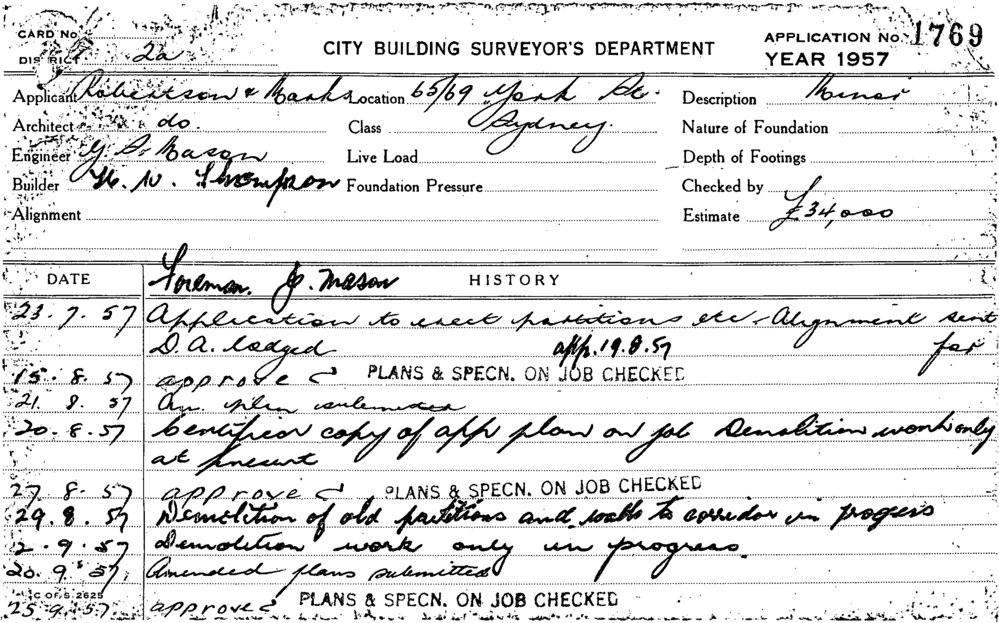 CARD No
CITY BUILDING SURVEYOR'S DEPARTMENT
APPLICATION No. 1769
DISTRICT 2a
YEAR 1957
Applicant Robertson & Marks Location 65/69 York St. Description Minor
Architect do. Class Sydney. Nature of Foundation
Engineer G. S. Mason Live Load Depth of Footings
Builder H. W. Thompson Foundation Pressure Checked by
Alignment Estimate £34,000
DATE Foreman. J. Mason HISTORY
23. 7. 57 Application to erect partitions etc - Alignment sent for
D.A. lodged app. 19.8.57
15. 8. 57 approved PLANS & SPECN. ON JOB CHECKED
21. 8. 57 Am. plan submitted
20. 8. 57 Certified copy of app plan on job Demolition work only
at present
27. 8. 57 approved PLANS & SPECN. ON JOB CHECKED
29. 8. 57 Demolition of old partitions and walls to corridor in progress
2. 9. 57 Demolition work only in progress.
20. 9. 57 Amended plans submitted
C OF S 2625
25. 9. 57. approved PLANS & SPECN. ON JOB CHECKED